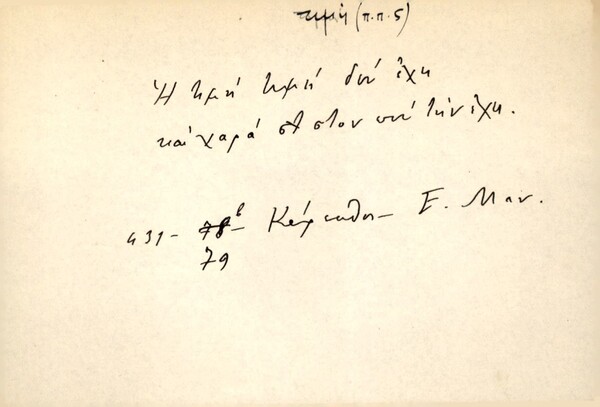 τιμή (π.π. 5)
Ἡ τιμή τιμή δέν ἔχει
καί χαρά στόν πού τήν ἔχει.
431 – 78β –
79
Κάρπαθος – Ε. Μαν.